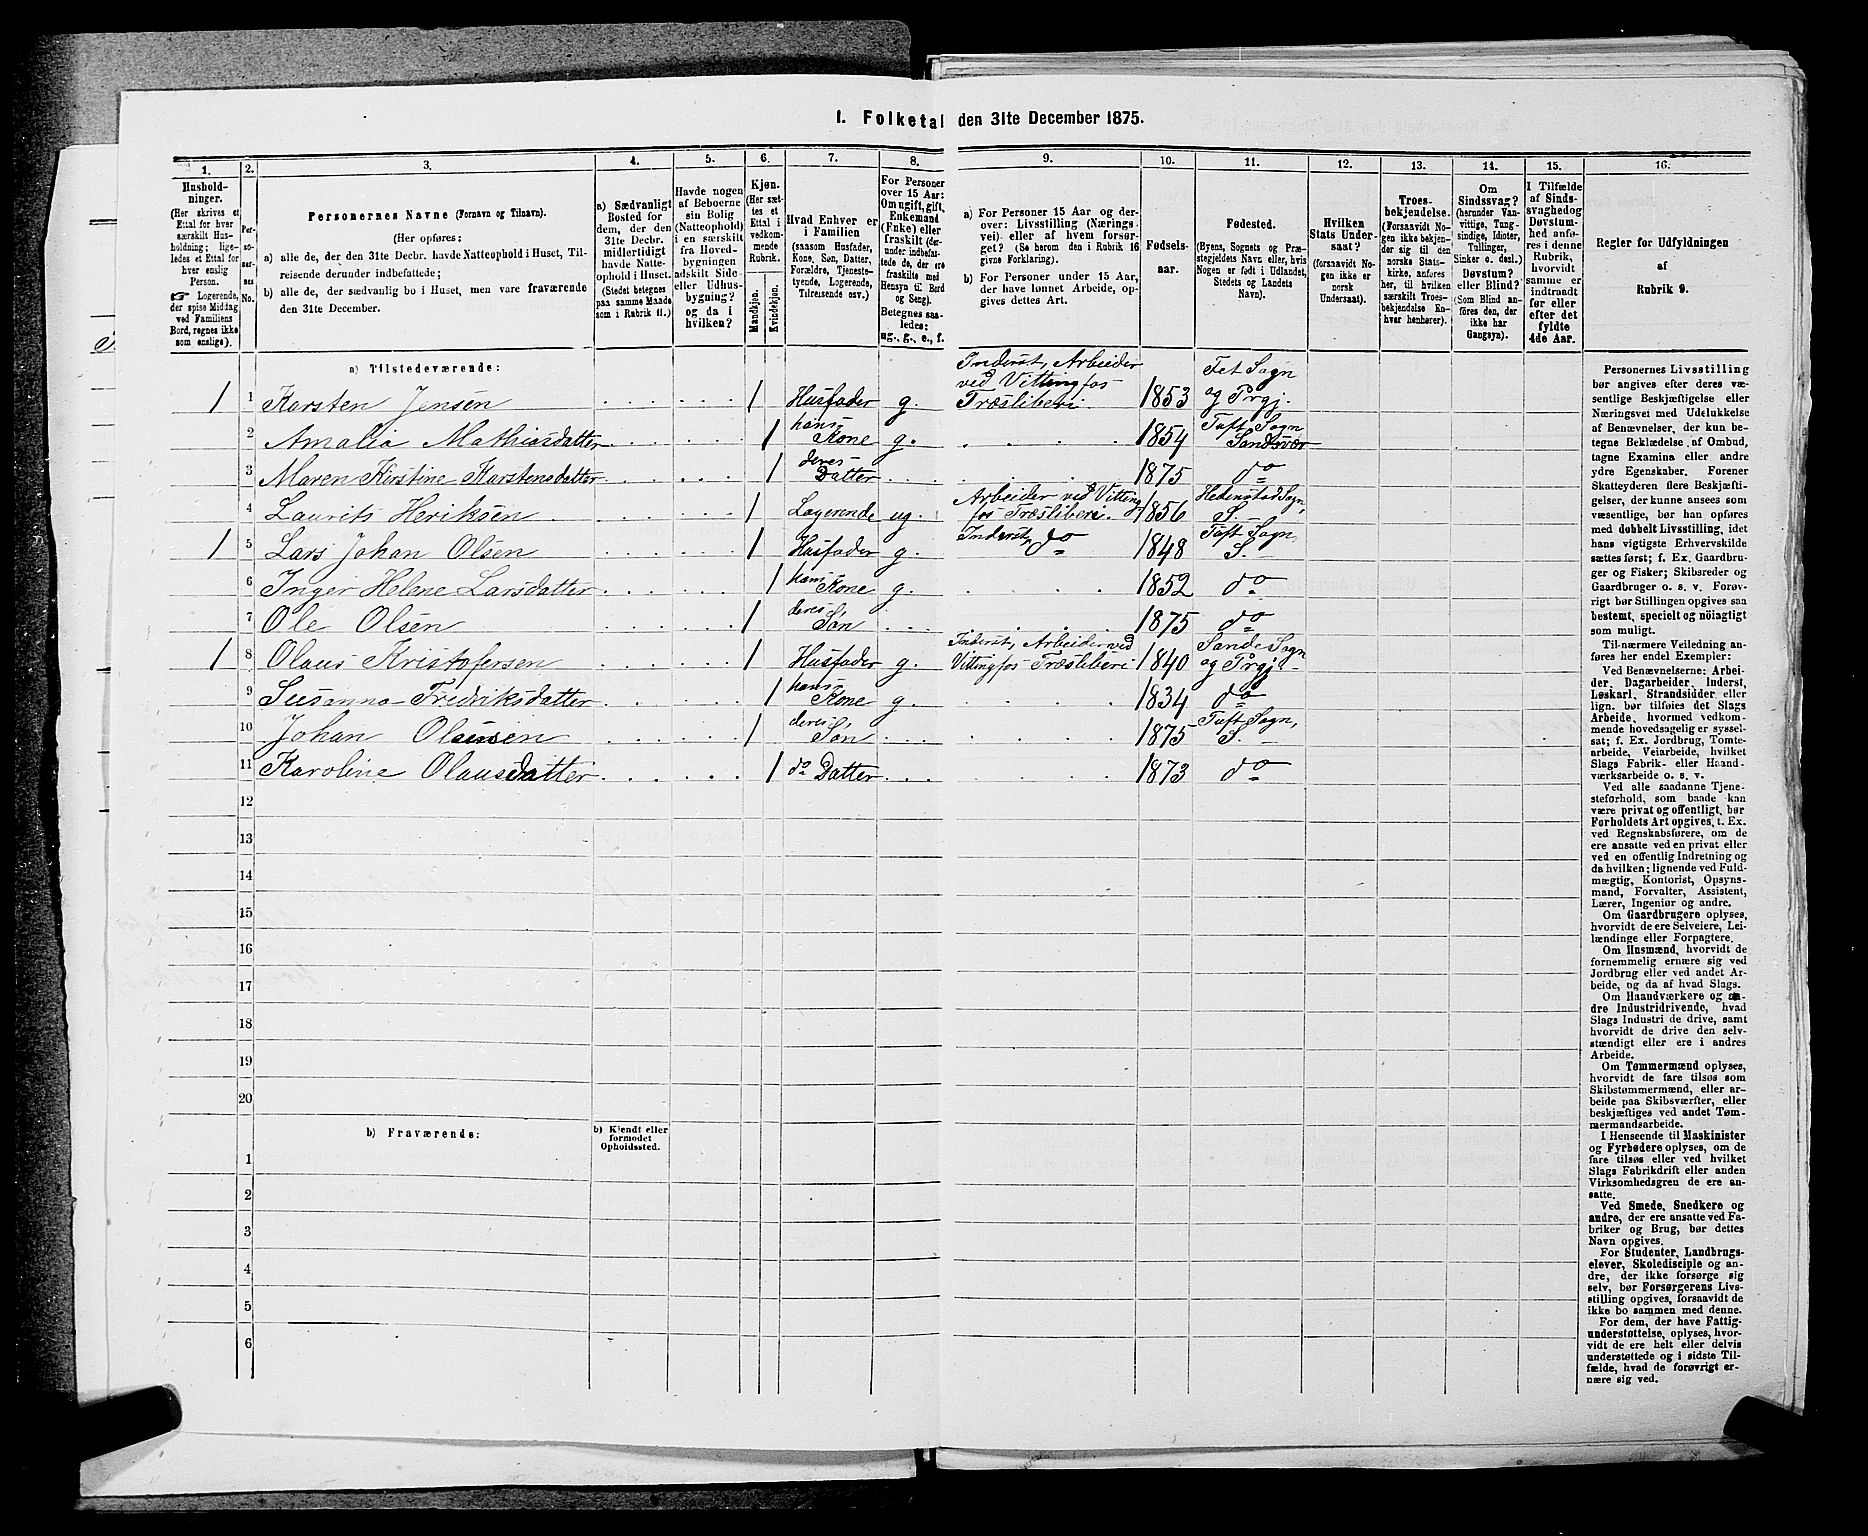 I. Folketal den 31te December 1875.
1. 2. 3. 4. 5. 6. 7. 8. 9. 10. 11. 12. 13. 14. 15. 16.
Hushold-
ninger.
(Her skrives et
Ettal for hver
særskilt Hus-
holdning; lige-
ledes et Ettal for
hver enslig
Person.
☛ Logerende,
der spise Middag
ved Familiens
Bord, regnes ikke
som enslige).
Per-
so-
ner-
nes
No.
Personernes Navne (Fornavn og Tilnavn).
(Her opføres:
a) alle de, der den 31te Decbr. havde Natteophold i Huset, Til-
reisende derunder indbefattede;
b) alle de, der sædvanlig bo i Huset, men vare fraværende
den 31te December.
a) Sædvanligt
Bosted for
dem, der den
31te Decbr.
midlertidigt
havde Natte-
ophold i Huset.
(Stedet betegnes
paa samme Maade
som i Rubrik 11.)
Havde nogen
af Beboerne
sin Bolig
(Natteophold)
i en særskilt
fra Hoved-
bygningen
adskilt Side-
eller Udhus-
bygning?
og da i
hvilken?
Kjøn.
(Her sæt-
tes et
Ettal i
vedkom-
mende
Rubrik.
Mandkjøn.
Kvindekjøn.
Hvad Enhver er
i Familien
(saasom Husfader,
Kone, Søn, Datter,
Forældre, Tjeneste-
tyende, Logerende,
Tilreisende osv.)
For Personer
over 15 Aar:
Om ugift, gift,
Enkemand
(Enke) eller
fraskilt (der-
under indbefat-
tede de, der ere
fraskilte med
Hensyn til Bord
og Seng).
Betegnes saa-
ledes:
ug., g., e., f.
a) For Personer 15 Aar og der-
over: Livsstilling (Nærings-
vei) eller af hvem forsør-
get? (Se herom den i Rubrik 16
givne Forklaring).
b) For Personer under 15 Aar,
der have lønnet Arbeide, op-
gives dettes Art.
Fødsels-
aar.
Fødested.
(Byens, Sognets og Præ-
stegjeldets Navn, eller, hvis
Nogen er født i Udlandet,
Stedets og Landets
Navn).
Hvilken
Stats Under-
saat?
(forsaavidt No-
gen ikke er
norsk
Undersaat).
Troes-
bekjendelse.
(Forsaavidt No-
gen ikke bekjen-
der sig til den
norske Stats-
kirke, anføres
her, til hvilken
særskilt Troes-
bekjendelse En-
hver henhører).
Om
Sindssvag?
(herunder Van-
vittige, Tung-
sindige, Idioter,
Tullinger,
Sinker o. desl.)
Døvstum?
eller Blind?
(Som Blind an-
føres den, der
ikke har
Gangsyn).
I Tilfælde
af Sinds-
svaghed og
Døvstum-
hed anfø-
res i denne
Rubrik,
hvorvidt
samme er
indtraadt
før eller
efter det
fyldte
4de Aar.
Regler for Udfyldningen
af
Rubrik 9.
a) Tilstedeværende:
1 1 Karsten Jensen 1 Husfader g. Inderst, Arbeider
ved Vittingfos-
Træsliberi. 1853 Fet Sogn
og Prgj.
2 Amalia Mathiasdatter 1 hans
Kone g. 1854 Tuft Sogn
Sandsvær
3 Maren Kirstine Karstensdatter 1 deres
Datter 1875 do
4 Laurits Heriksen 1 Logerende ug. Arbeider ved Vitting
fos Træsliberi. 1856 Hedenstad Sogn,
S.
1 5 Lars Johan Olsen 1 Husfader g. Inderst, do 1848 Tuft Sogn,
S.
6 Inger Helene Larsdatter 1 hans
Kone g. 1852 do
7 Ole Olsen 1 deres
Søn 1875 do
1 8 Olaus Kristofersen 1 Husfader g. Inderst, Arbeider ved
Vittingfos-Træsliberi 1840 Sande Sogn
og Prgj.
9 Susanna Fredriksdatter 1 hans
Kone g. 1834 do
10 Johan Olausen 1 deres
Søn 1875 Tuft Sogn,
S.
11 Karoline Olausdatter 1 do Datter 1873 do
12
13
14
15
16
17
18
19
20
b) Fraværende:
b) Kjendt eller
formodet
Opholdssted.
1
2
3
4
5
6
Personernes Livsstilling
bør angives efter deres væ-
sentlige Beskjæftigelse eller
Næringsvei med Udelukkelse
af Benævnelser, der kun be-
tegne Beklædelse af Ombud,
tagne Examina eller andre
ydre Egenskaber. Forener
Skatteyderen flere Beskjæfti-
gelser, der kunne ansees som
væsentlige, bør han opføres
med dobbelt Livsstilling, idet
hans vigtigste Erhvervskilde
sættes først; f. Ex. Gaardbru-
ger og Fisker; Skibsreder og
Gaardbruger o. s. v. Forøv-
rigt bør Stillingen opgives saa
bestemt, specielt og nøiagtigt
som muligt.
Til-nærmere Veiledning an-
føres her endel Exempler:
Ved Benævnelserne: Arbei-
der, Dagarbeider, Inderst,
Løskarl, Strandsidder eller
lign. bør tilføies det Slags
Arbeide, hvormed vedkom-
mende hovedsagelig er syssel-
sat; f. Ex. Jordbrug, Tomte-
arbeide, Veiarbeide, hvilket
Slags Fabrik- eller Haand-
værksarbeide o. s. v.
Ved alle saadanne Tjene-
steforhold, som baade kan
være privat og offentligt, bør
Forholdets Art opgives, t. Ex.
ved Regnskabsførere, om de
ere ansatte ved en privat eller
ved en offentlig Indretning og
da hvilken; lignende ved Fuld-
mægtig, Kontorist, Opsyns-
mand, Forvalter, Assistent,
Lærer, Ingeniør og andre.
Om Gaardbrugere oplyses,
hvorvidt de ere Selveiere, Lei-
lændinge eller Forpagtere.
Om Husmænd, hvorvidt de
fornemmelig ernære sig ved
Jordbrug eller ved andet Ar-
beide, og da af hvad Slags.
Om Haandværkere og an-
dre Industridrivende, hvad
Slags Industri de drive, samt
hvorvidt de drive den selv-
stændigt eller ere i andres
Arbeide.
Om Tømmermænd oplyses,
hvorvidt de fare tilsøs som
Skibstømmermænd, eller ar-
beide paa Skibsværfter, eller
beskjæftiges ved andet Tøm-
mermandsarbeide.
I Henseende til Maskinister
og Fyrbødere oplyses, om de
fare tilsøs eller ved hvilket
Slags Fabrikdrift eller anden
Virksomhedsgren de ere an-
satte.
Ved Smede, Snedkere og
andre, der ere ansatte ved Fa-
briker og Brug, bør dettes
Navn opgives.
For Studenter, Landbrugs-
elever, Skoledisciple og an-
dre, der ikke forsørge sig
selv, bør Forsørgerens Livs-
stilling opgives, forsaavidt de
ikke bo sammen med denne.
For dem, der have Fattig-
understøttelse, oplyses, hvor-
vidt de ere helt eller delvis
understøttede og i sidste Til-
fælde, hvad de forøvrigt er-
nære sig ved.